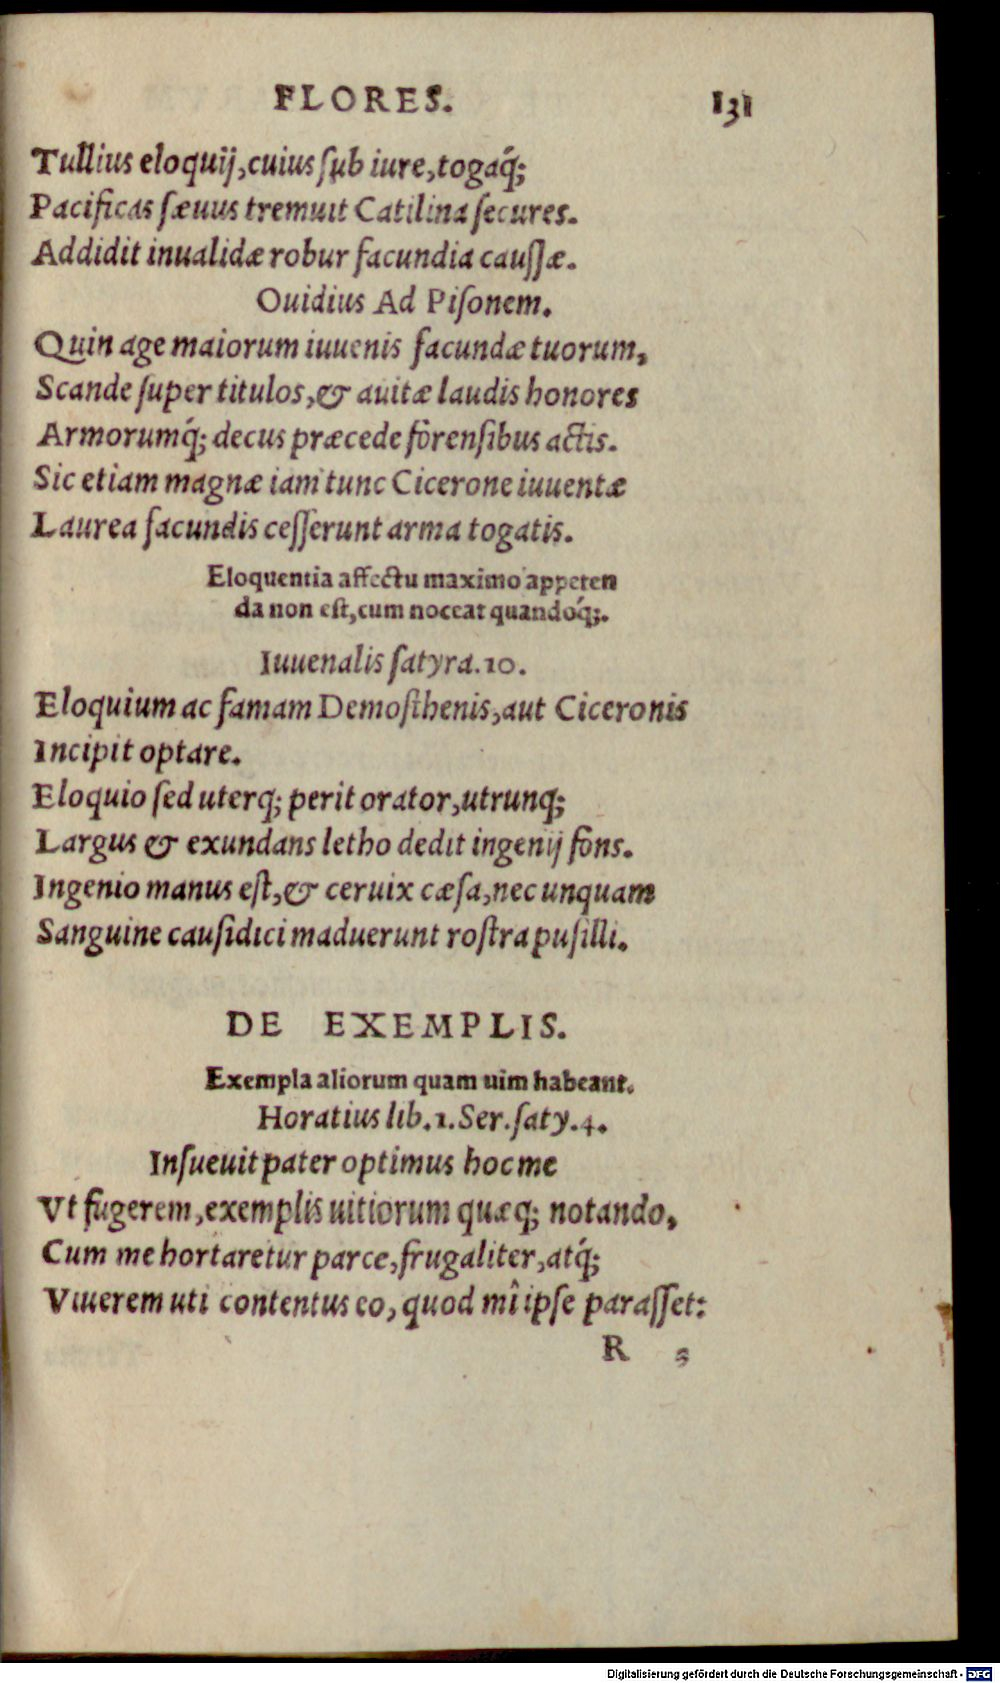 FLORES. 131
Tullius eloquij, cuius ſub iure, togaq́;
Pacificas ſæuus tremuit Catilina ſecures.
Addidit inualidæ robur facundia cauſſæ.
Ouidius Ad Piſonem.
Quin age maiorum iuuenis facundæ tuorum,
Scande ſuper titulos, & auitæ laudis honores
Armorumq́; decus præcede forenſibus actis.
Sic etiam magnæ iam tunc Cicerone iuuentæ
Laurea facundis ceſſerunt arma togatis.
Eloquentia affectu maximo appeten
da non eſt, cum noceat quandoq́;.
Iuuenalis ſatyra. 10.
Eloquium ac famam Demoſthenis, aut Ciceronis
Incipit optare.
Eloquio ſed uterq; perit orator, utrunq;
Largus & exundans letho dedit ingenij fons.
Ingenio manus eſt, & ceruix cæſa, nec unquam
Sanguine cauſidici maduerunt roſtra puſilli.
DE EXEMPLIS.
Exempla aliorum quam uim habeant.
Horatius lib. 1. Ser. ſaty. 4.
Inſueuit pater optimus hoc me
Vt fugerem, exemplis uitiorum quæq; notando,
Cum me hortaretur parce, frugaliter, atq́;
Viuerem uti contentus eo, quod mî ipſe paraſſet:
R 5
Digitalisierung gefördert durch die Deutsche Forschungsgemeinschaft - DFG